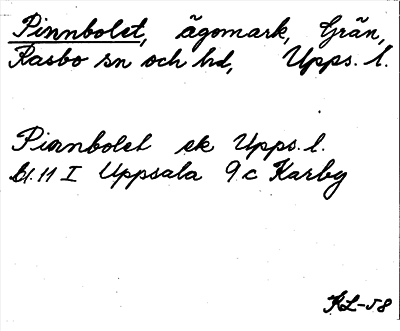 Pinnbolet, ägomark, Grän,
Rasbo sn och hd, Upps. l.
Pinnbolet ek Upps. l.
bl. 11 I Uppsala 9 c Karby
KL-58